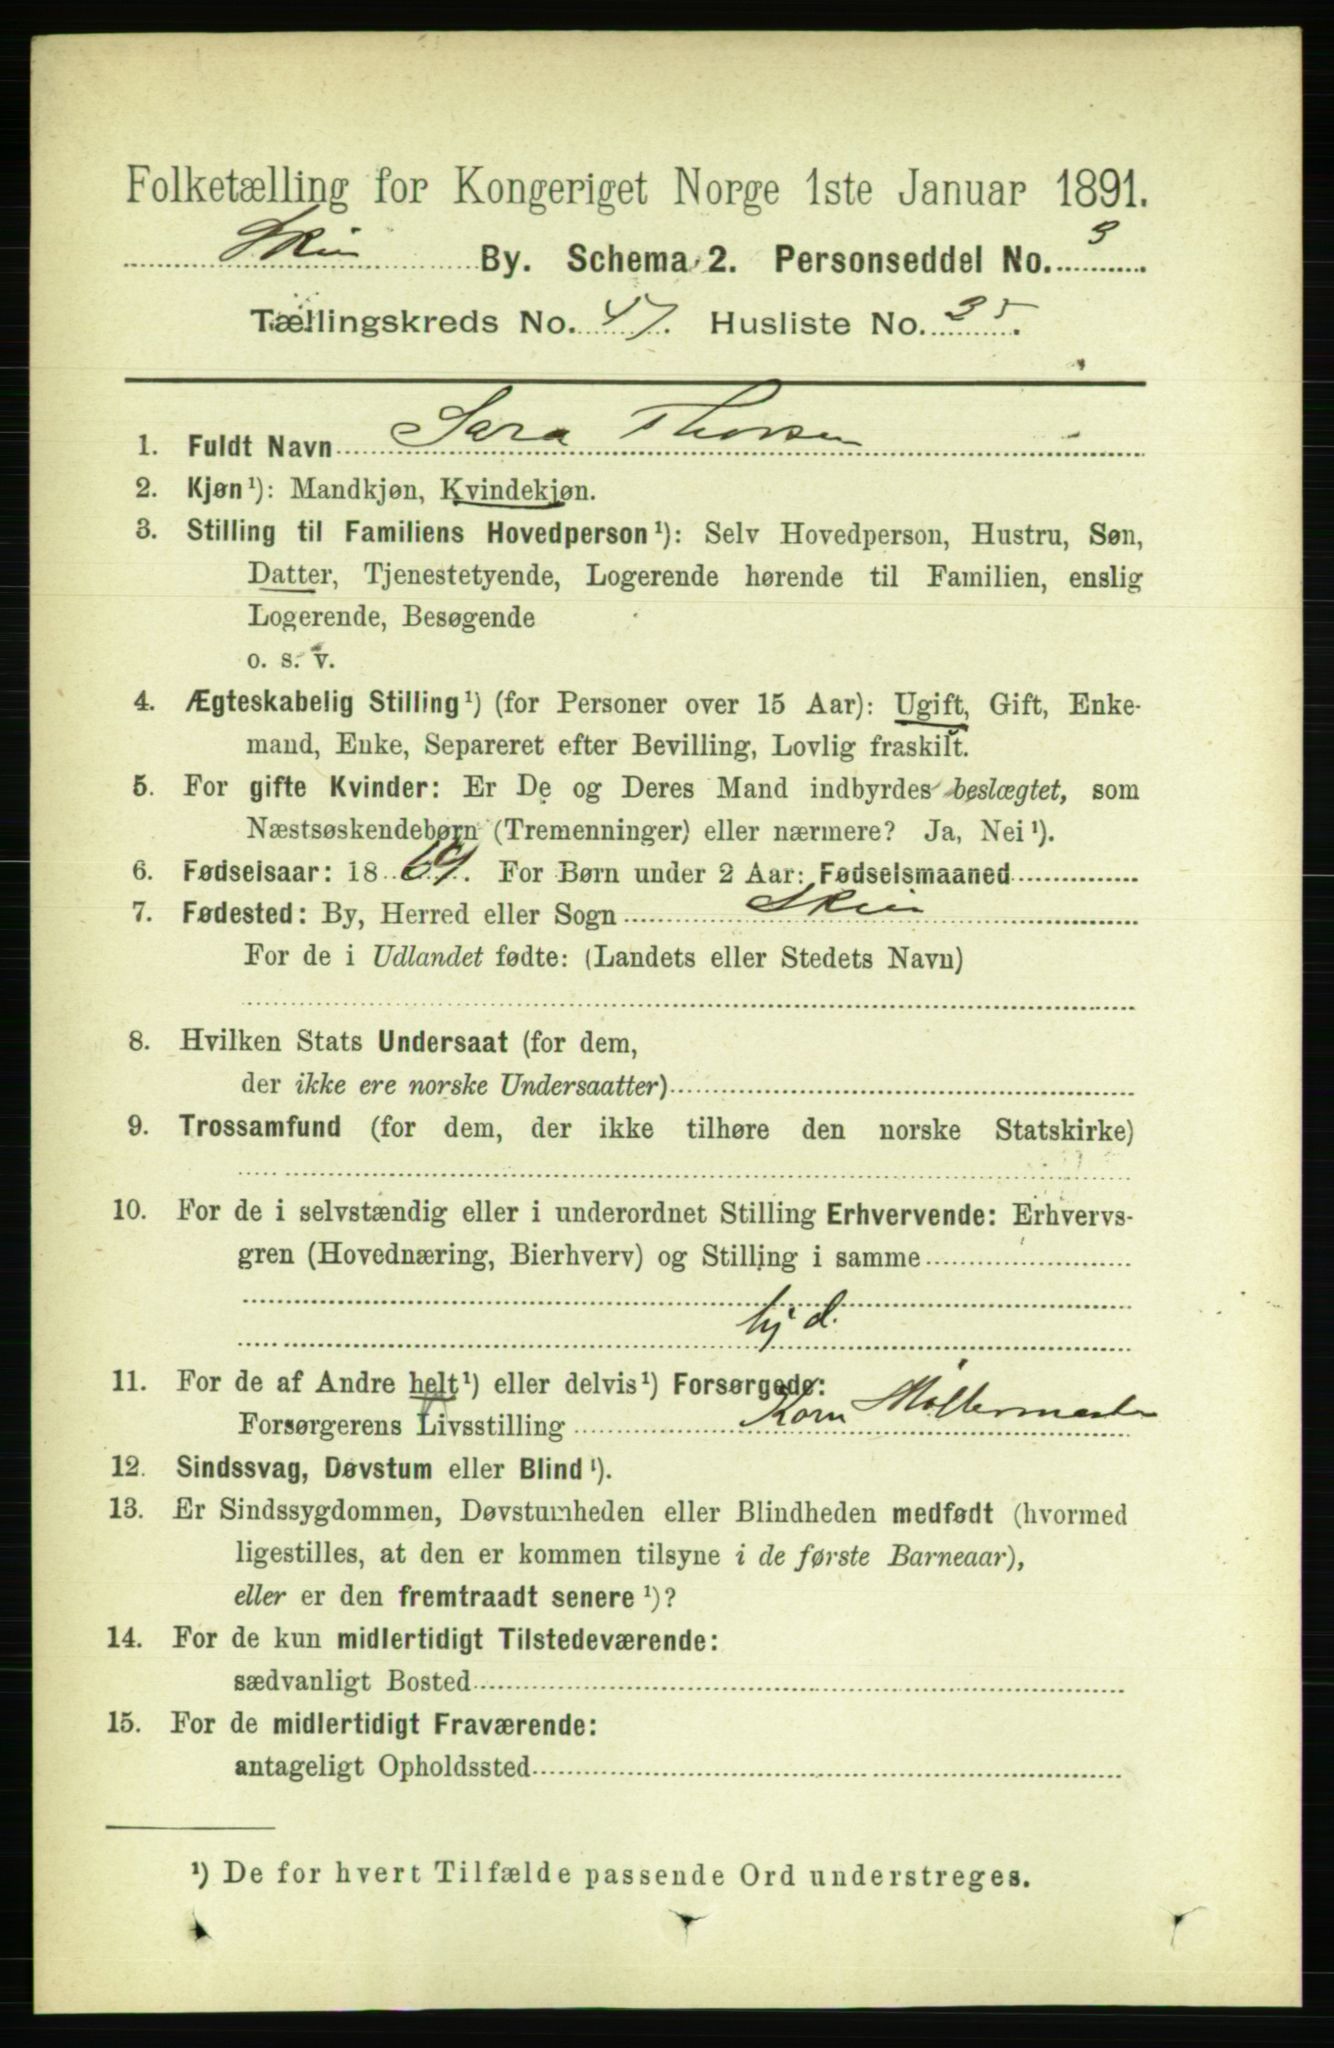 Folketælling for Kongeriget Norge 1ste Januar 1891.
Skien By. Schema 2. Personseddel No. 3
Tællingskreds No. 47. Husliste No. 35.
1. Fuldt Navn Sara Thorsen
2. Kjøn ¹): Mandkjøn, Kvindekjøn.
3. Stilling til Familiens Hovedperson ¹): Selv Hovedperson, Hustru, Søn,
Datter, Tjenestetyende, Logerende hørende til Familien, enslig
Logerende, Besøgende
o. s. v.
4. Ægteskabelig Stilling ¹) (for Personer over 15 Aar): Ugift, Gift, Enke-
mand, Enke, Separeret efter Bevilling, Lovlig fraskilt.
5. For gifte Kvinder: Er De og Deres Mand indbyrdes beslægtet, som
Næstsøskendebørn (Tremenninger) eller nærmere? Ja, Nei ¹).
6. Fødselsaar: 18 69. For Børn under 2 Aar: Fødselsmaaned
7. Fødested: By, Herred eller Sogn Skien
For de i Udlandet fødte: (Landets eller Stedets Navn)
8. Hvilken Stats Undersaat (for dem,
der ikke ere norske Undersaatter)
9. Trossamfund (for dem, der ikke tilhøre den norske Statskirke)
10. For de i selvstændig eller i underordnet Stilling Erhvervende: Erhvervs-
gren (Hovednæring, Bierhverv) og Stilling i samme
hj d.
11. For de af Andre helt ¹) eller delvis ¹) Forsørgede:
Forsørgerens Livsstilling Korn Møllermester
12. Sindssvag, Døvstum eller Blind ¹).
13. Er Sindssygdommen, Døvstumheden eller Blindheden medfødt (hvormed
ligestilles, at den er kommen tilsyne i de første Barneaar),
eller er den fremtraadt senere ¹)?
14. For de kun midlertidigt Tilstedeværende:
sædvanligt Bosted
15. For de midlertidigt Fraværende:
antageligt Opholdssted
¹) De for hvert Tilfælde passende Ord understreges.